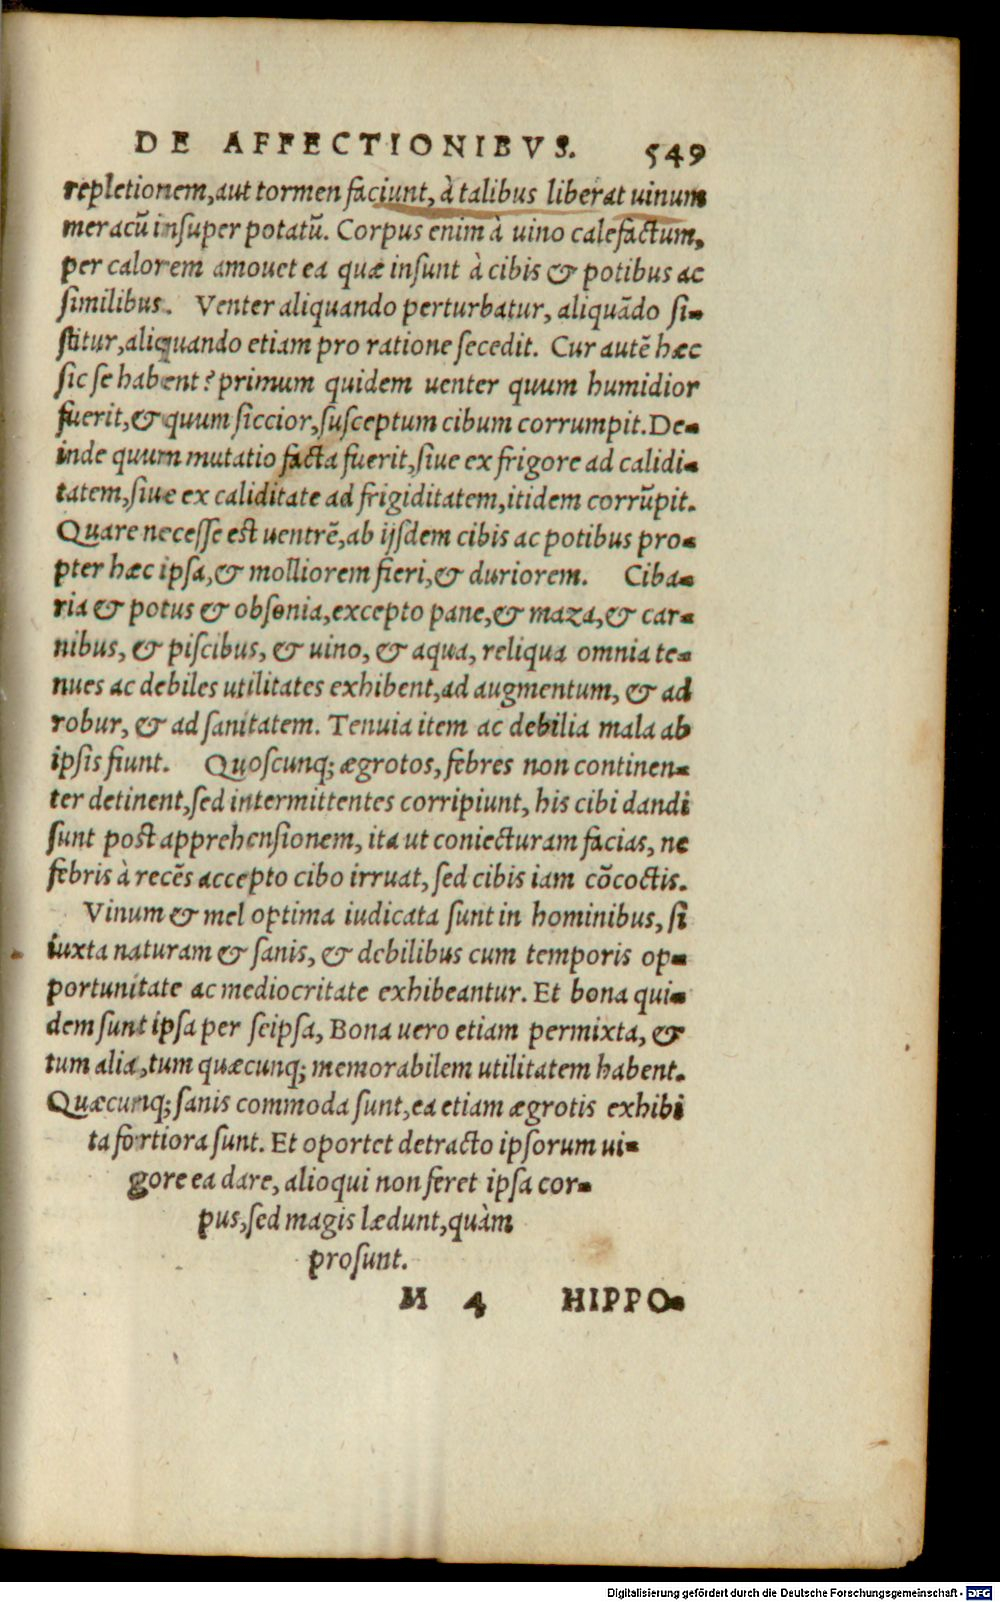 DE AFFECTIONIBVS. 549
repletionem, aut tormen faciunt, à talibus liberat uinum
meracũ insuper potatũ. Corpus enim à uino calefactum,
per calorem amouet ea quæ insunt à cibis & potibus ac
similibus. Venter aliquando perturbatur, aliquãdo si-
stitur, aliquando etiam pro ratione secedit. Cur autẽ hæc
sic se habent? primum quidem uenter quum humidior
fuerit, & quum siccior, susceptum cibum corrumpit. De-
inde quum mutatio facta fuerit, siue ex frigore ad calidi-
tatem, siue ex caliditate ad frigiditatem, itidem corrũpit.
Quare necesse est uentrẽ, ab ijsdem cibis ac potibus pro-
pter hæc ipsa, & molliorem fieri, & duriorem. Ciba-
ria & potus & obsonia, excepto pane, & maza, & car-
nibus, & piscibus, & uino, & aqua, reliqua omnia te-
nues ac debiles utilitates exhibent, ad augmentum, & ad
robur, & ad sanitatem. Tenuia item ac debilia mala ab
ipsis fiunt. Quoscunq; ægrotos, febres non continen-
ter detinent, sed intermittentes corripiunt, his cibi dandi
sunt post apprehensionem, ita ut coniecturam facias, ne
febris à recẽs accepto cibo irruat, sed cibis iam cõcoctis.
Vinum & mel optima iudicata sunt in hominibus, si
iuxta naturam & sanis, & debilibus cum temporis op-
portunitate ac mediocritate exhibeantur. Et bona qui-
dem sunt ipsa per seipsa, Bona uero etiam permixta, &
tum alia, tum quæcunq; memorabilem utilitatem habent.
Quæcunq; sanis commoda sunt, ea etiam ægrotis exhibi
ta fortiora sunt. Et oportet detracto ipsorum ui-
gore ea dare, alioqui non feret ipsa cor-
pus, sed magis lædunt, quàm
prosunt.
M 4 HIPPO-
Digitalisierung gefördert durch die Deutsche Forschungsgemeinschaft - DFG